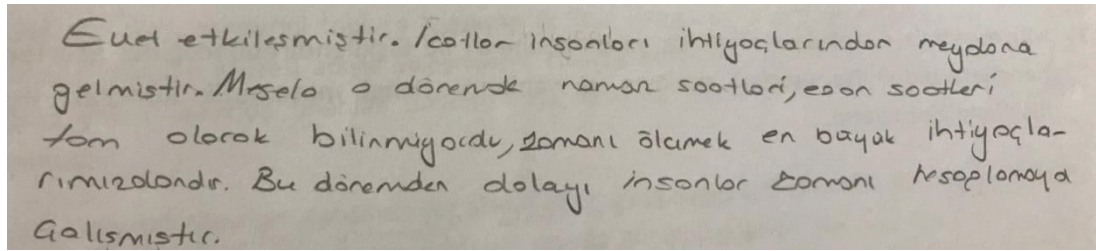 Evet etkileşmiştir. İcatlar insanları ihtiyaçlarından meydana
gelmiştir. Mesela o dönemde naman saatleri, ezan saatleri
tam olarak bilinmiyordu, zamanı ölçmek en büyük ihtiyaçla-
rımızdandır. Bu dönemden dolayı insanlar zamanı hesaplamaya
Çalışmıştır.